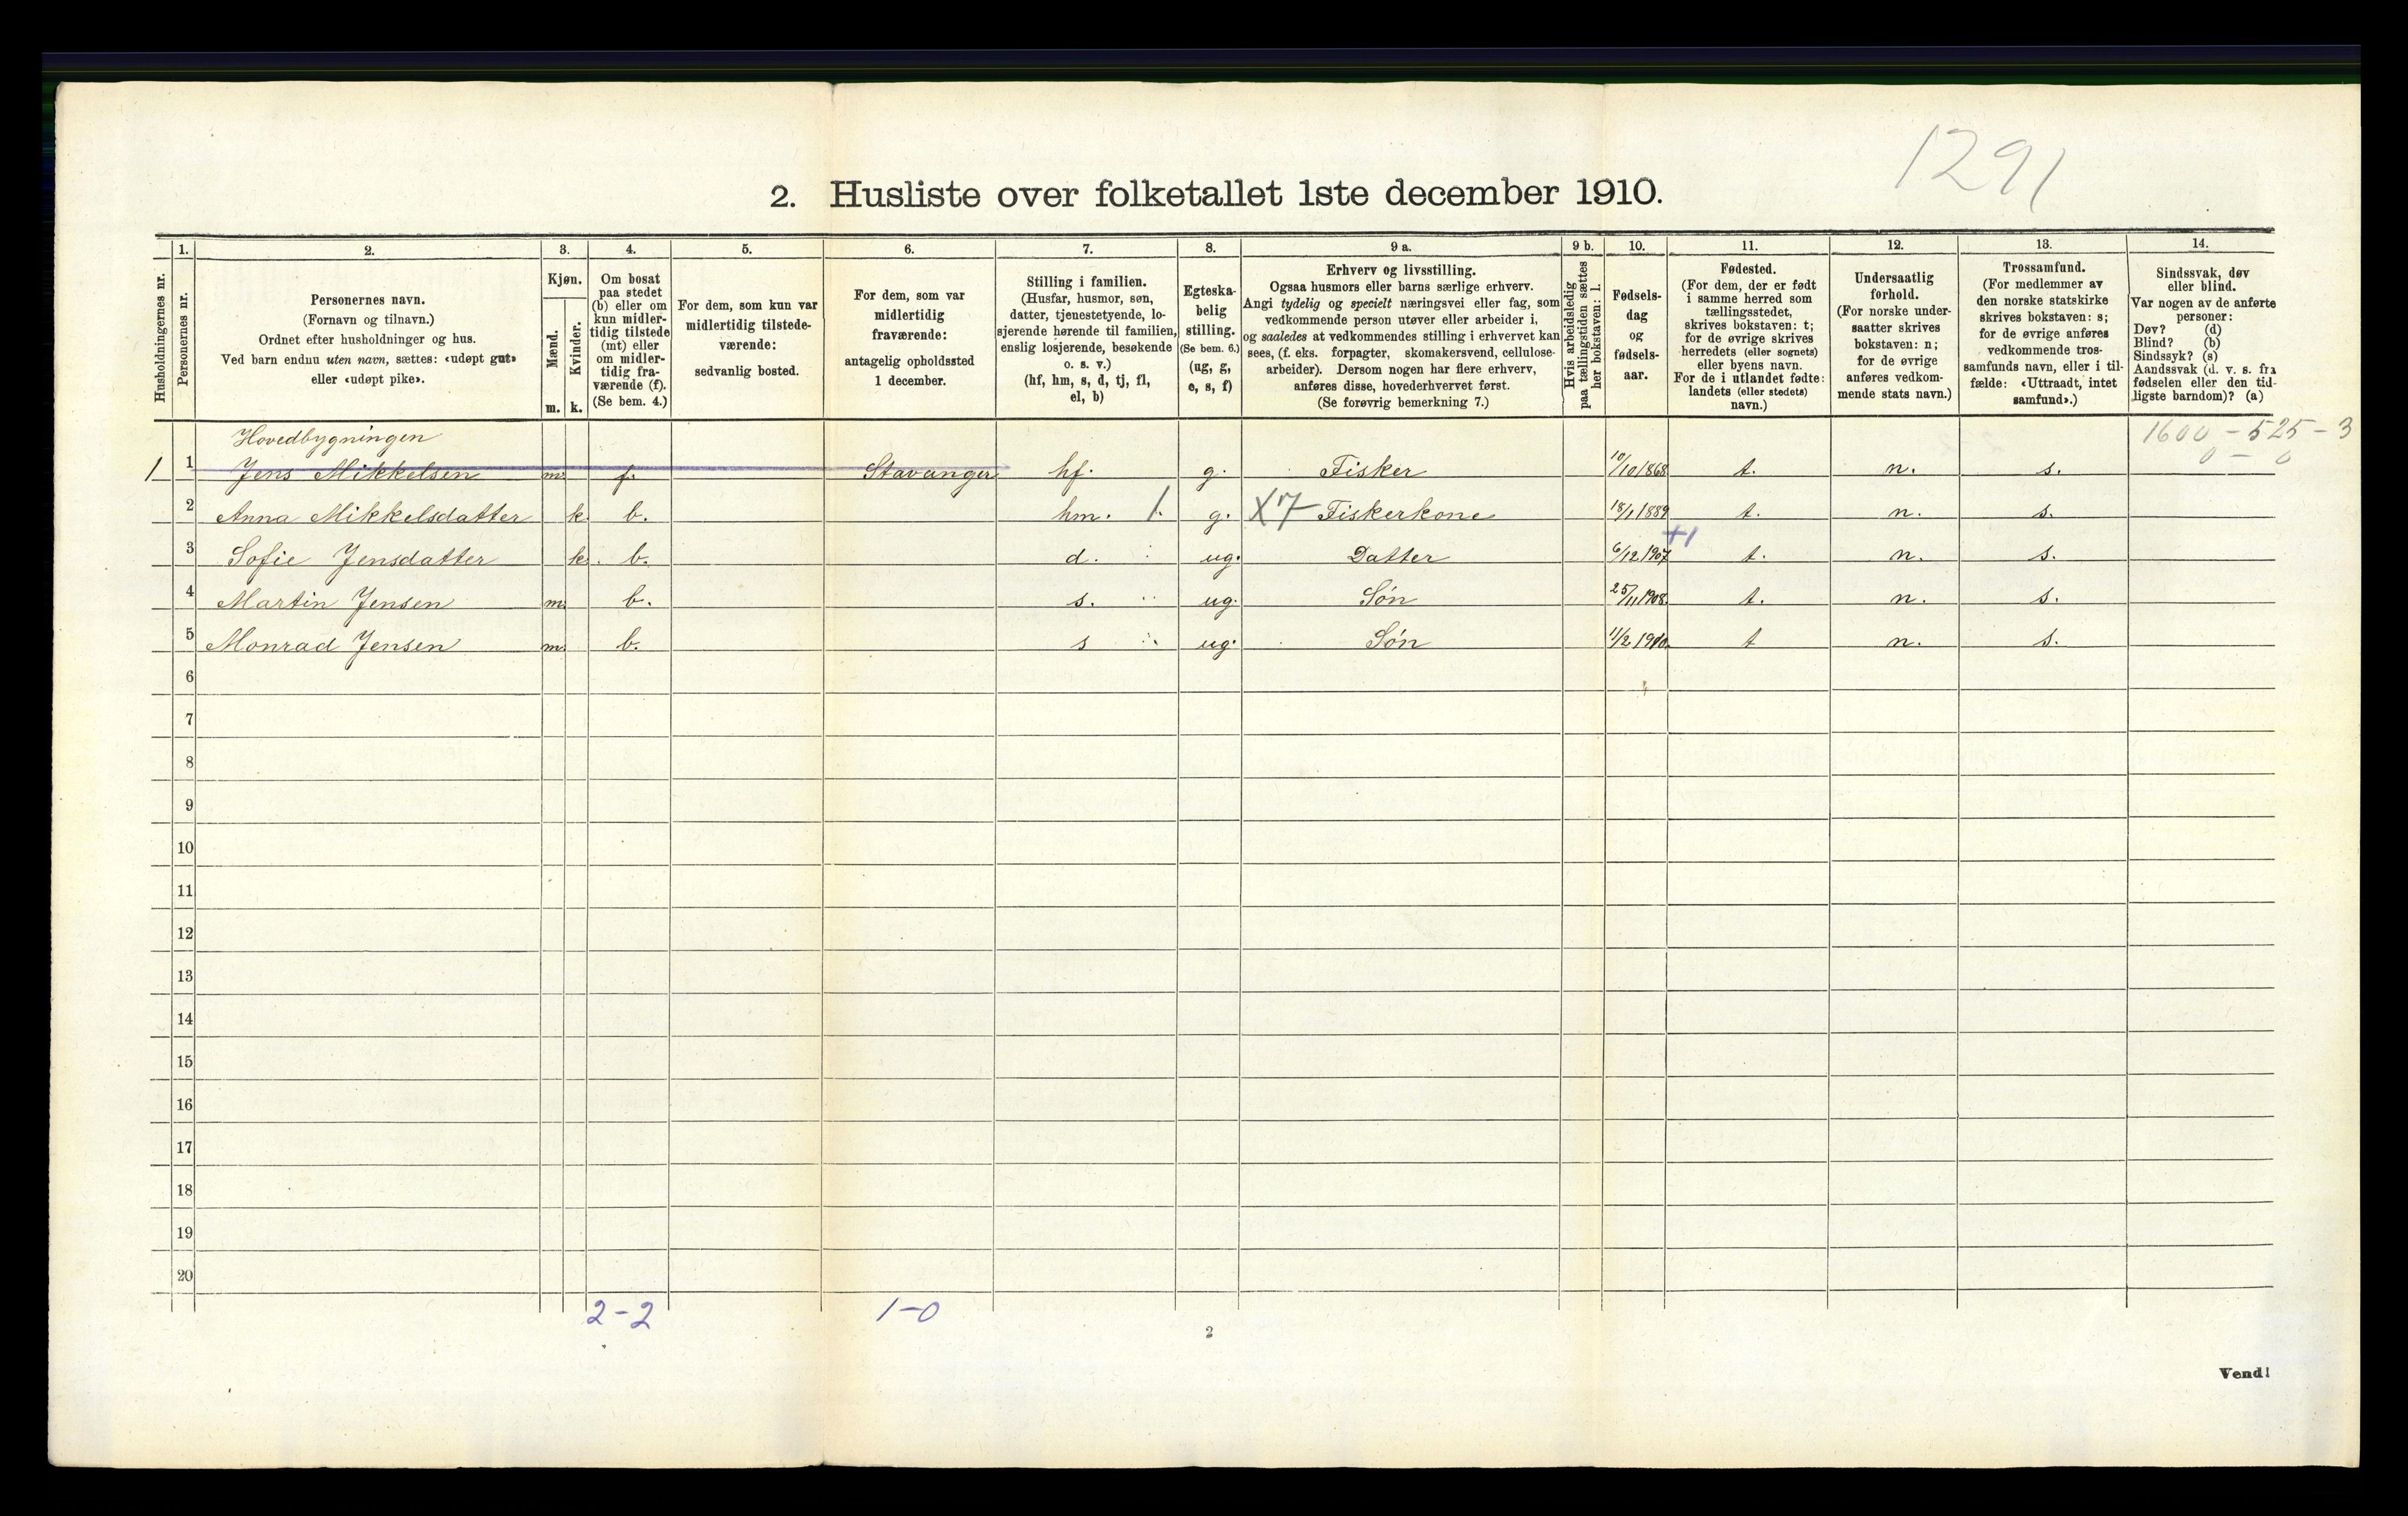 1291
2. Husliste over folketallet 1ste december 1910.
Husholdningernes nr.
1.
Personernes nr.
2.
Personernes navn.
(Fornavn og tilnavn.)
Ordnet efter husholdninger og hus.
Ved barn endnu uten navn, sættes: «udøpt gut»
eller «udøpt pike».
3.
Kjøn.
Mænd.
m.
Kvinder.
k.
4.
Om bosat
paa stedet
(b) eller om
kun midler-
tidig tilstede
(mt) eller
om midler-
tidig fra-
værende (f).
(Se bem. 4.)
5.
For dem, som kun var
midlertidig tilstede-
værende:
sedvanlig bosted.
6.
For dem, som var
midlertidig
fraværende:
antagelig opholdssted
1 december.
7.
Stilling i familien.
(Husfar, husmor, søn,
datter, tjenestetyende, lo-
sjerende hørende til familien,
enslig losjerende, besøkende
o. s. v.)
(hf, hm, s, d, tj, fl,
el, b)
8.
Egteska-
belig
stilling.
(Se bem. 6.)
(ug, g,
e, s, f)
9 a.
Erhverv og livsstilling.
Ogsaa husmors eller barns særlige erhverv.
Angi tydelig og specielt næringsvei eller fag, som
vedkommende person utøver eller arbeider i,
og saaledes at vedkommendes stilling i erhvervet kan
sees, (f. eks. forpagter, skomakersvend, cellulose-
arbeider). Dersom nogen har flere erhverv,
anføres disse, hovederhvervet først.
(Se forøvrig bemerkning 7.)
9 b.
Hvis arbeidsledig
paa tællingstiden sættes
her bokstaven: l.
10.
Fødsels-
dag
og
fødsels-
aar.
11.
Fødested.
(For dem, der er født
i samme herred som
tællingsstedet,
skrives bokstaven: t;
for de øvrige skrives
herredets (eller sognets)
eller byens navn.
For de i utlandet fødte:
landets (eller stedets)
navn.)
12.
Undersaatlig
forhold.
(For norske under-
saatter skrives
bokstaven: n;
for de øvrige
anføres vedkom-
mende stats navn.)
13.
Trossamfund.
(For medlemmer av
den norske statskirke
skrives bokstaven: s;
for de øvrige anføres
vedkommende tros-
samfunds navn, eller i til-
fælde: «Uttraadt, intet
samfund».)
14.
Sindssvak, døv
eller blind.
Var nogen av de anførte
personer:
Døv? (d)
Blind? (b)
Sindssyk? (s)
Aandssvak (d. v. s. fra
fødselen eller den tid-
ligste barndom)? (a)
Hovedbygningen
1600 - 525 - 3
0 - 0
1 1 Jens Mikkelsen m. f. Stavanger hf. g. Fisker 10/10 1868 t. n. s.
2 Anna Mikkelsdatter k. b. hm. 1. g. X7 Fiskerkone 18/1 1889 t. n. s.
+1
3 Sofie Jensdatter k. b. d. ug. Datter 6/12 1907 t. n. s.
4 Martin Jensen m. b. s. ug. Søn 25/11 1908. t. n. s.
5 Monrad Jensen m. b. s ug. Søn 11/2 1910. t n. s.
6
7
8
9
10
11
12
13
14
15
16
17
18
19
20
2-2 1-0
2
Vend!